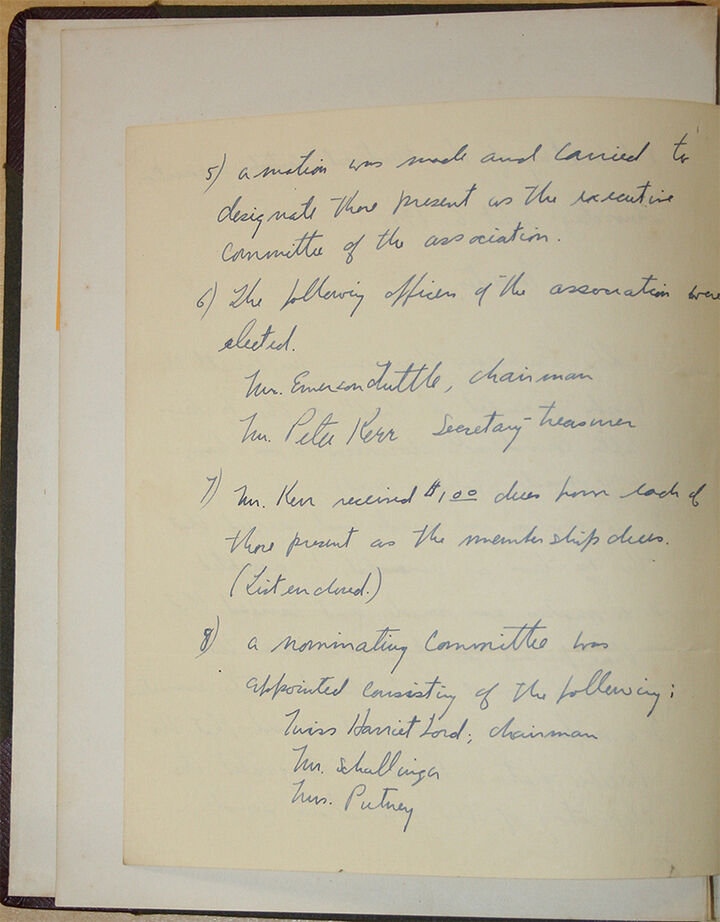 5) a motion was made and carried to
designate those present as the executive
committee of the association.
6) The following officers of the association were
elected.
Mr. Emerson Tuttle, chairman
Mr. Peter Kerr Secretary-treasurer
7) Mr. Kerr received $1.00 dues from each of
those present as the membership dues.
(List enclosed.)
8) a nominating committee was
appointed consisting of the following:
Miss Harriet Lord, chairman
Mr. Schallinger
Mrs. Putney